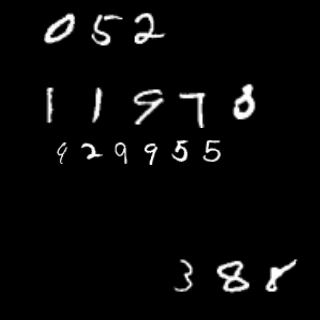 052
11978
929955
388